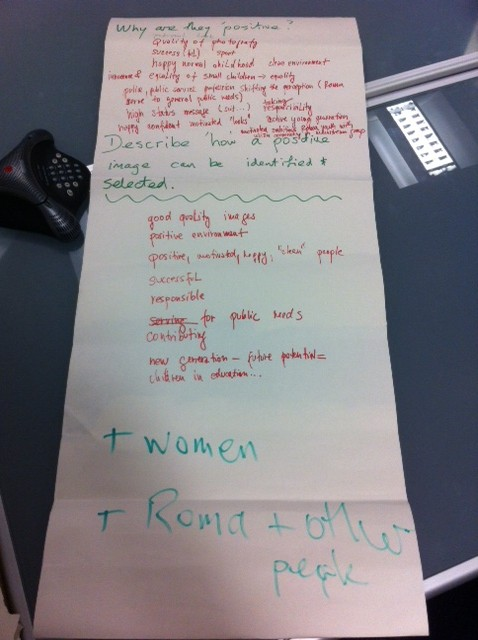 Why are they 'positive'?
Quality of photography
success (ful) sport
happy normal childhood clean environment
innocence & equality of small children → equality
police, public service profession shifting the perception (Roma
serve to general public needs) taking
high status message (suit...) responsibility
happy confident motivated "looks" active young generation
motivated Roma youth with
Describe 'how a positive
image can be identified +
selected.
good quality images
positive environment
positive, motivated, happy, "clean" people
successful
responsible
serving for public needs
contributing
new generation - future potential =
children in education...
+ women
+ Roma + other
people